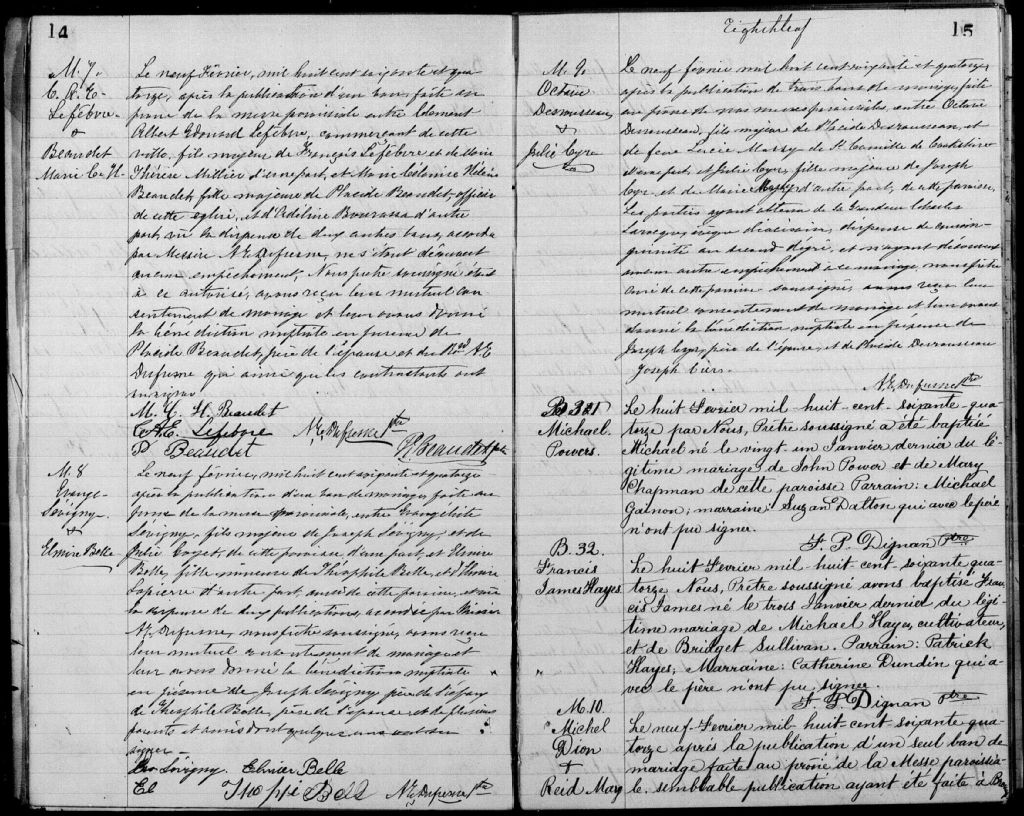 14
M. 7.
C. A. E.
Lefebvre
&
Beaudet
Marie C. H.
Le neuf Février, mil huit cent soixante et qua
torze, après la publication d'un ban, faite au
prône de la messe paroissiale entre Clément
Albert Edouard Lefebvre, commerçant de cette
ville, fils majeur de François Lefebvre et de Marie
Thérèse Millier d'une part, et Marie Célénire Hélène
Beaudet, fille majeure de Placide Beaudet, officier
de cette église, et d'Adeline Bourassa d'autre
part, vu la dispense de deux autres bans, accordée
par Messire N. E. Dufresne, ne s'étant découvert
aucun empêchement, Nous prêtre soussigné étant
à ce autorisé, avons reçu leur mutuel con
sentement de mariage et leur avons donné
la bénédiction nuptiale en présence de
Placide Beaudet, père de l'épouse et du Rvd A. E
Dufresne qui ainsi que les contractants ont
signé.
M. C. H. Beaudet
C. A. E. Lefebvre N. E. Dufresne Ptre
P Beaudet P. Beaudet
M. 8
Evange-
Sévigny
&
Elmire Belle
Le neuf février, mil huit cent soixante et quatorze
après la publication d'un ban de mariage, faite au
prône de la messe paroissiale, entre Evangéliste
Sévigny, fils majeur de Joseph Sévigny, et de
Julie de cette paroisse d'une part, et Elmire
Belle, fille mineure de Théophile Belle, et d'
Lapierre d'autre part, aussi de cette paroisse, et vu
la dispense de deux publications, accordée par Messire
N. E. Dufresne, nous prêtre soussigné, avons reçu
leur mutuel consentement de mariage et
leur avons donné la bénédiction nuptiale
en présence de Joseph Sévigny père de l'époux
de Théophile Belle, père de l'épouse, et de plusieurs
parents et amis dont quelques uns ont su
signer —
Sévigny. Elmire Belle
El Theophile Bell N. E. Dufresne Ptre
15
M. 9.
Octave
Desrousseau
&
Julie Cyr
Le neuf février mil huit cent soixante et quatorze,
après la publication de trois bans de mariage, faite
au prône de nos messes paroissiales, entre Octave
Desrousseau, fils majeur de Placide Desrousseau, et
de feue Lucie Massy de St. Camille de
d'une part, et Julie Cyr, fille majeure de Joseph
Cyr, et de Marie Massy d'autre part, de cette paroisse.
Les parties ayant obtenu de Sa Grandeur Charles
Larocque, évêque diocésain, dispense de consan-
guinité au second degré, et n'ayant découvert
aucun autre empêchement à ce mariage, nous prêtre
curé de cette paroisse soussigné, avons reçu leur
mutuel consentement de mariage et leur avons
donné la bénédiction nuptiale en présence de
Joseph Cyr, père de l'épouse, et de Placide Desrousseau
N. E. Dufresne Ptre
B 321
Michael
Powers.
Le huit Fevrier mil-huit-cent-soixante-qua-
torze par Nous, Prêtre soussigné a été baptisé
Michael né le vingt-un Janvier dernier du lé-
gitime mariage de John Power et de Mary
Chapman de cette paroisse Parrain: Michael
Galnon; marraine: Suzan Dalton qui avec le père
n'ont pu signer.
F. P. Dignan Ptre
B. 32.
Francis
James Hayes
Le huit Fevrier mil-huit-cent soixante qua-
torze Nous, Prêtre soussigné avons baptisé Fran
cis James né le trois Janvier dernier du légi
time mariage de Michael Hayes, cultivateur,
et de Bridget Sullivan. Parrain: Patrick
Hayes; Marraine: Catherine Dundin qui a-
vec le père n'ont pu signer.
F. P. Dignan Ptre
M. 10.
Michel
Dion
+
Reid Mary
Le neuf Fevrier mil-huit-cent soixante qua
torze après la publication d'un seul ban de
mariage faite au prône de la Messe paroissia
le semblable publication ayant été faite à